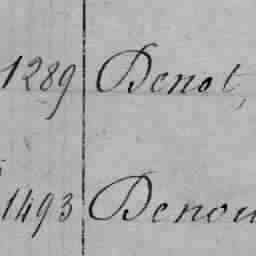 1289 Denot,
1493 Denou